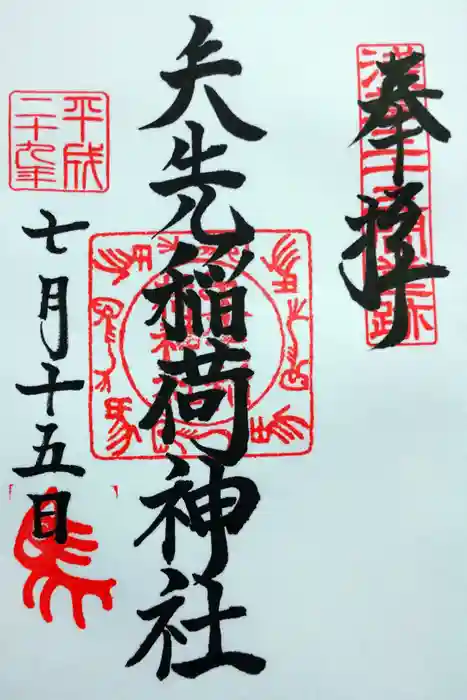 奉拝
矢先稲荷神社
平成
二十九年
七月十五日